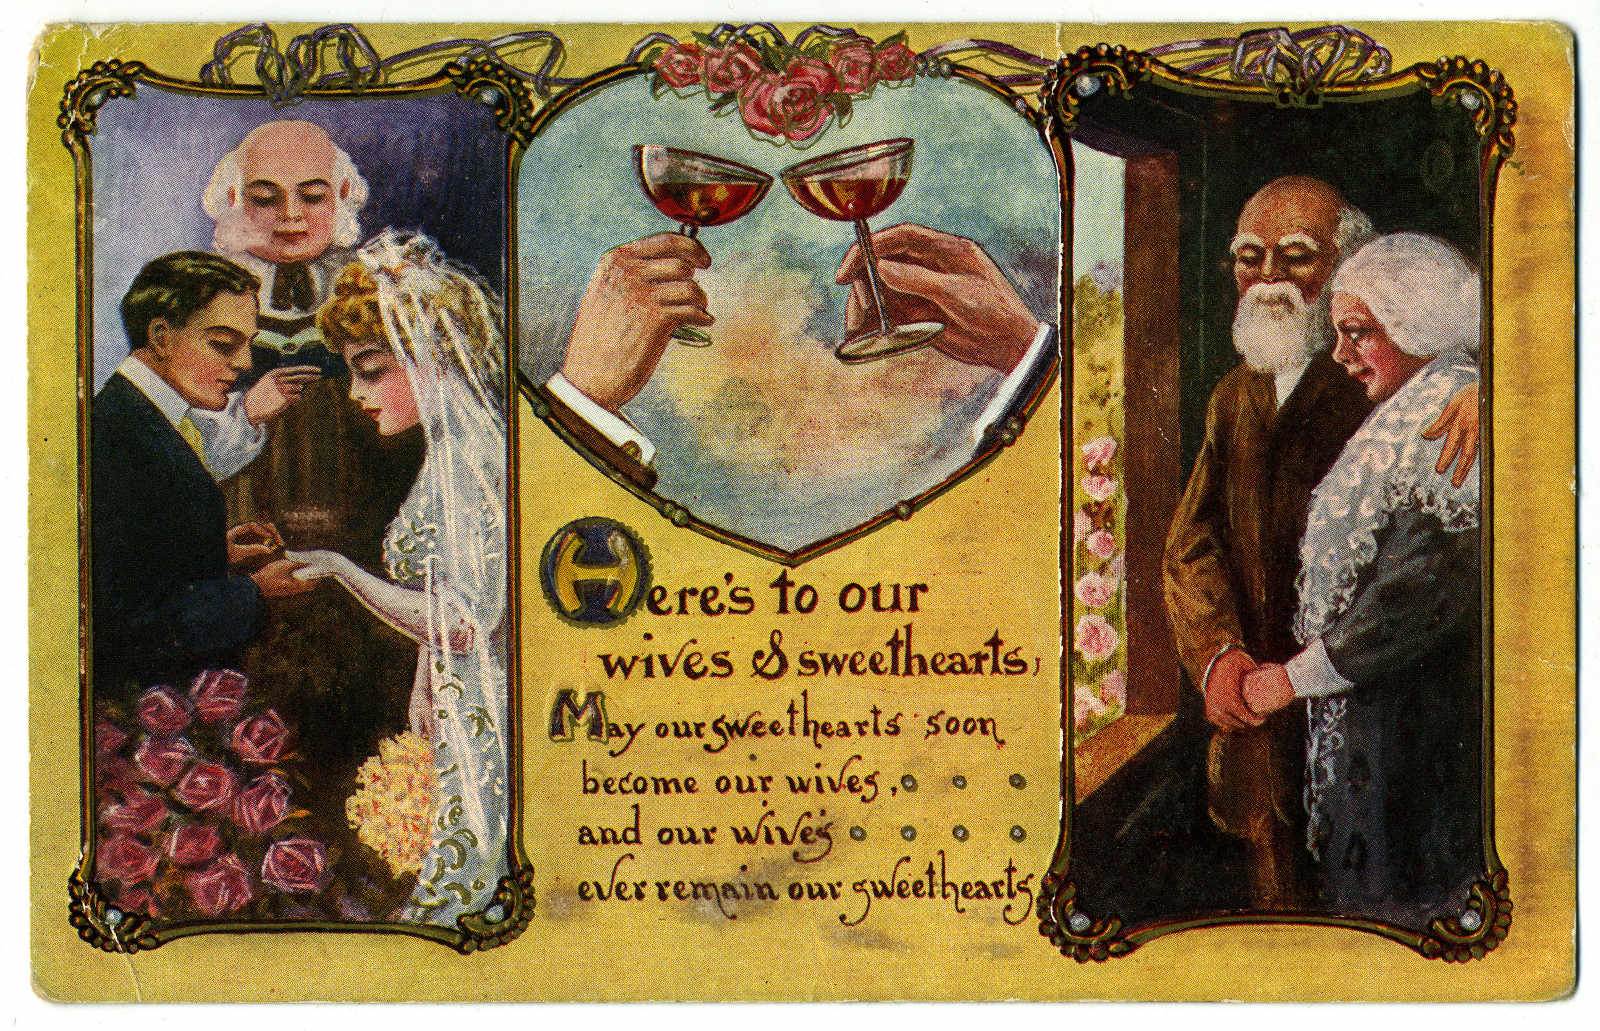 Here's to our
wives & sweethearts,
May our sweethearts soon
become our wives,
and our wives
ever remain our sweethearts